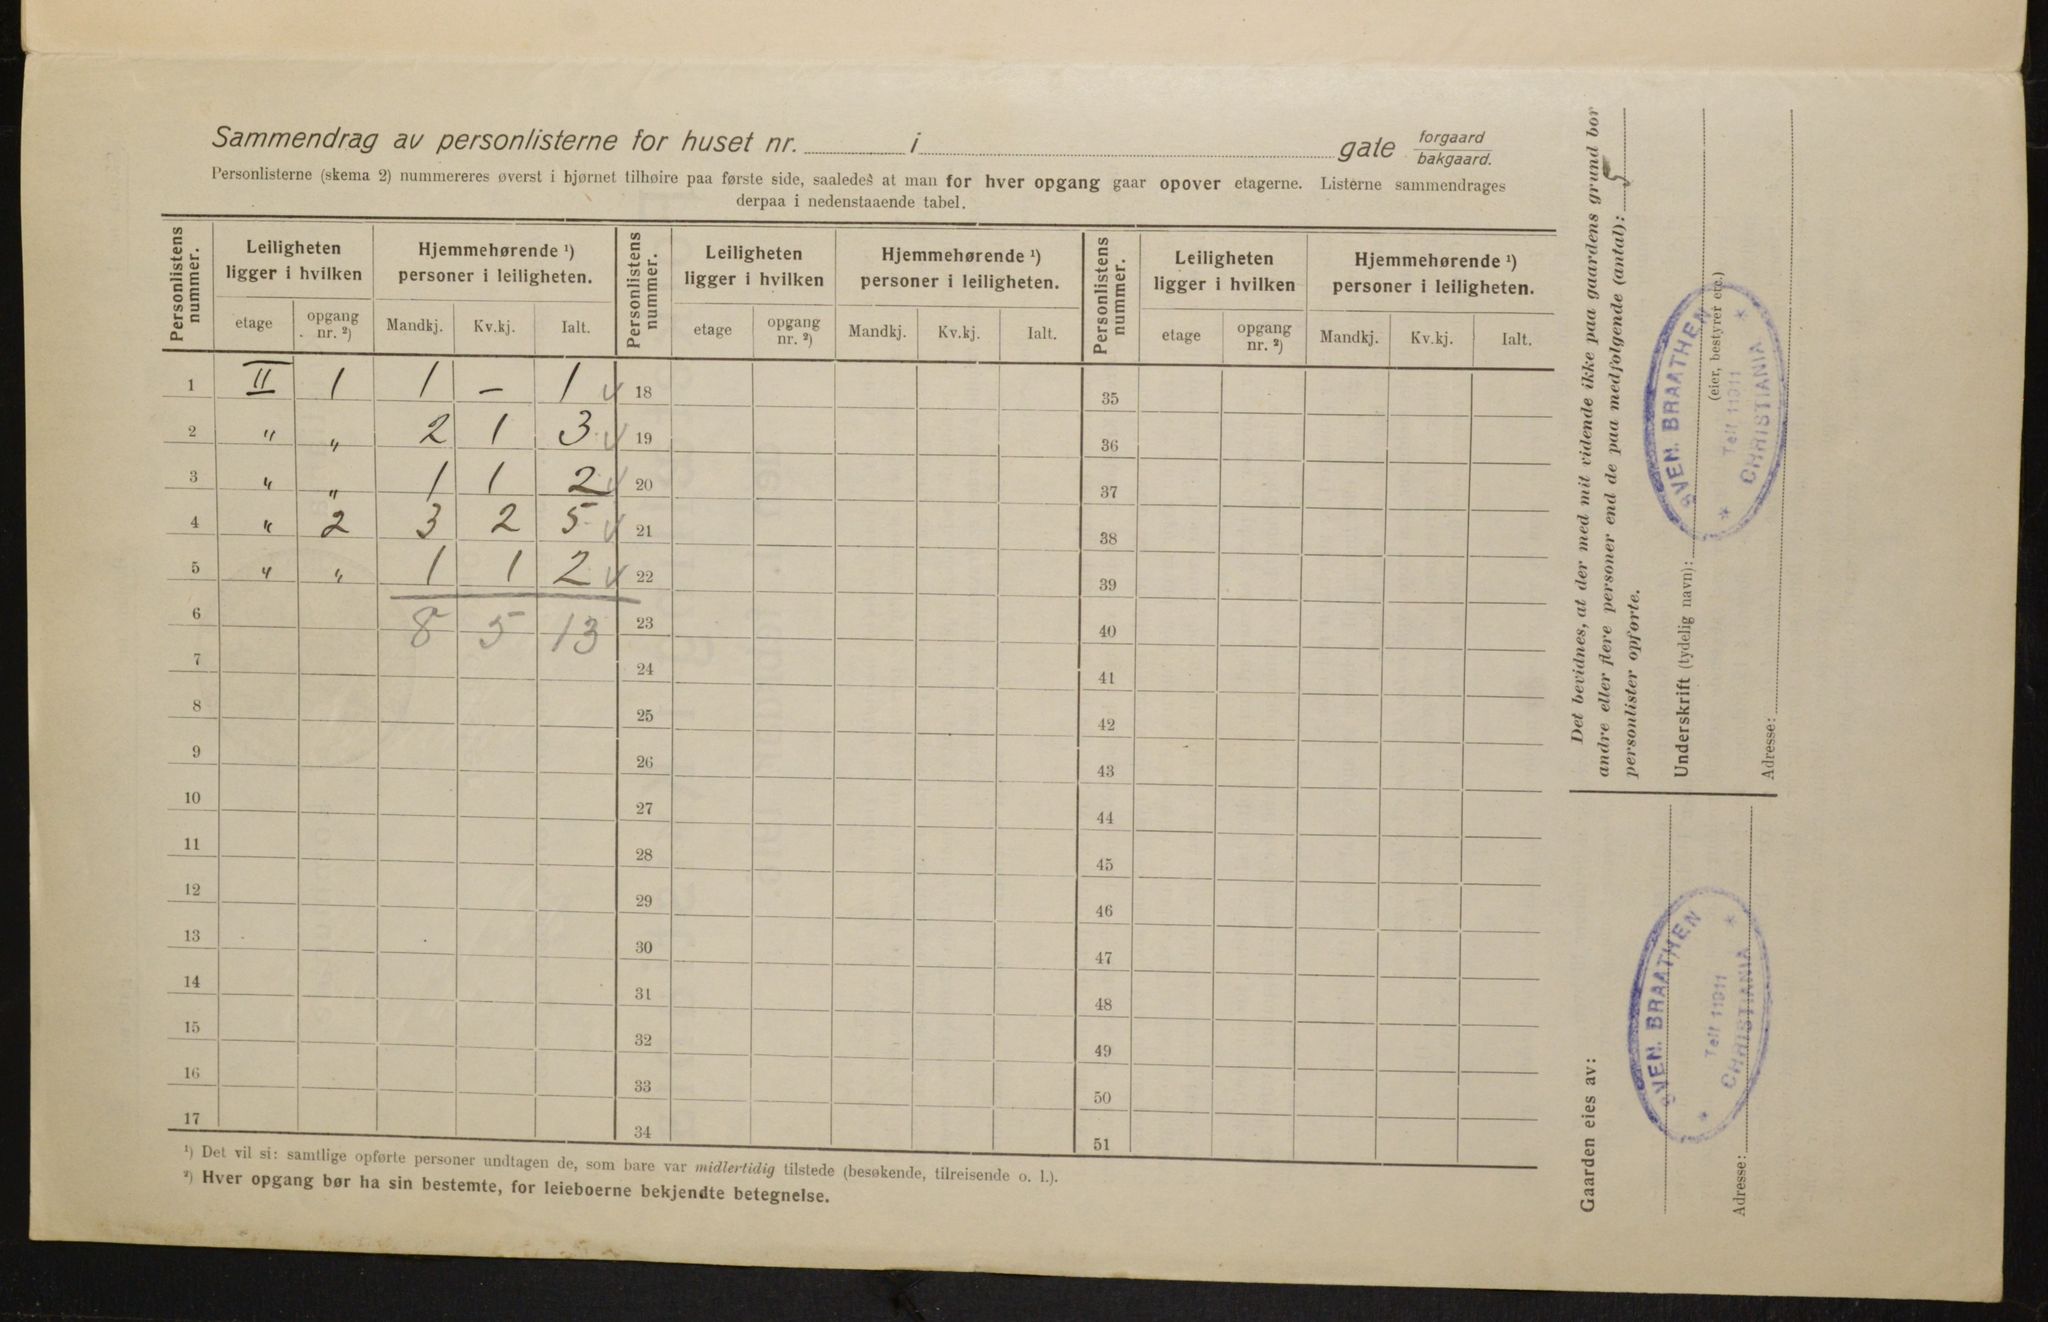 Sammendrag av personlisterne for huset nr. i gate forgaard bakgaard.
Personlisterne (skema 2) nummereres øverst i hjørnet tilhøire paa første side, saaledes at man for hver opgang gaar opover etagerne. Listerne sammendrages
derpaa i nedenstaaende tabel.
Personlistens nummer. Leiligheten ligger i hvilken Hjemmehørende ¹) personer i leiligheten. Personlistens nummer. Leiligheten ligger i hvilken Hjemmehørende ¹) personer i leiligheten. Personlistens nummer. Leiligheten ligger i hvilken Hjemmehørende ¹) personer i leiligheten.
etage opgang nr. ²) Mandkj. Kv.kj. Ialt. etage opgang nr. ²) Mandkj. Kv.kj. Ialt. etage opgang nr. ²) Mandkj. Kv.kj. Ialt.
1 II 1 1 – 1 18 35
2 " " 2 1 3 19 36
3 " " 1 1 2 20 37
4 " 2 3 2 5 21 38
5 " " 1 1 2 22 39
6 8 5 13 23 40
7 24 41
8 25 42
9 26 43
10 27 44
11 28 45
12 29 46
13 30 47
14 31 48
15 32 49
16 33 50
17 34 51
¹) Det vil si: samtlige opførte personer undtagen de, som bare var midlertidig tilstede (besøkende, tilreisende o. l.).
²) Hver opgang bør ha sin bestemte, for leieboerne bekjendte betegnelse.
Det bevidnes, at der med mit vidende ikke paa gaardens grund bor
andre eller flere personer end de paa medfølgende (antal): 5
personlister opførte.
Underskrift (tydelig navn):
(eier, bestyrer etc.)
Adresse:
SVEN. BRAATHEN
Telf 11911
CHRISTIANIA
Gaarden eies av:
Adresse:
SVEN. BRAATHEN
Telf 11911
CHRISTIANIA